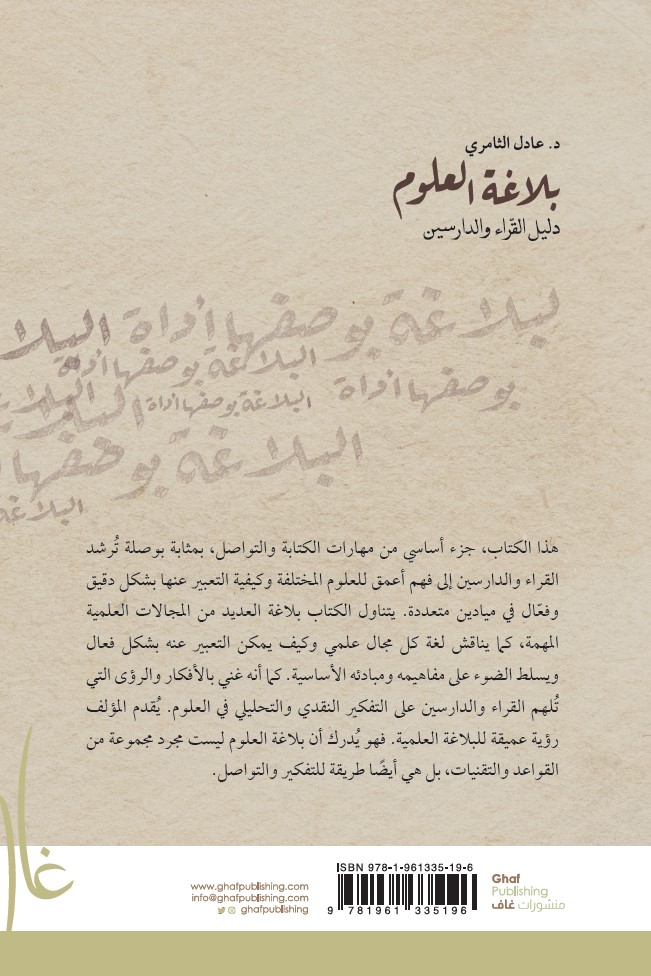 د. عادل الثامري
بلاغة العلوم
دليل القرّاء والدارسين
لبلاغة بوصفها أداة البلا
البلاغة بوصفها أداة
بوصفها أداة
البلاغة بوصفها أداة
البلا
البلاغة بوصفها
البلاغة
هذا الكتاب، جزء أساسي من مهارات الكتابة والتواصل، بمثابة بوصلة تُرشد
القراء والدارسين إلى فهم أعمق للعلوم المختلفة وكيفية التعبير عنها بشكل دقيق
وفعّال في ميادين متعددة. يتناول الكتاب بلاغة العديد من المجالات العلمية
المهمة، كما يناقش لغة كل مجال علمي وكيف يمكن التعبير عنه بشكل فعال
ويسلط الضوء على مفاهيمه ومبادئه الأساسية. كما أنه غني بالأفكار والرؤى التي
تُلهم القراء والدارسين على التفكير النقدي والتحليلي في العلوم. يُقدم المؤلف
رؤية عميقة للبلاغة العلمية. فهو يُدرك أن بلاغة العلوم ليست مجرد مجموعة من
القواعد والتقنيات، بل هي أيضًا طريقة للتفكير والتواصل.
ISBN 978-1-961335-19-6
9 781961 335196
www.ghafpublishing.com
info@ghafpublishing.com
ghafpublishing
Ghaf
Publishing
منشورات غاف